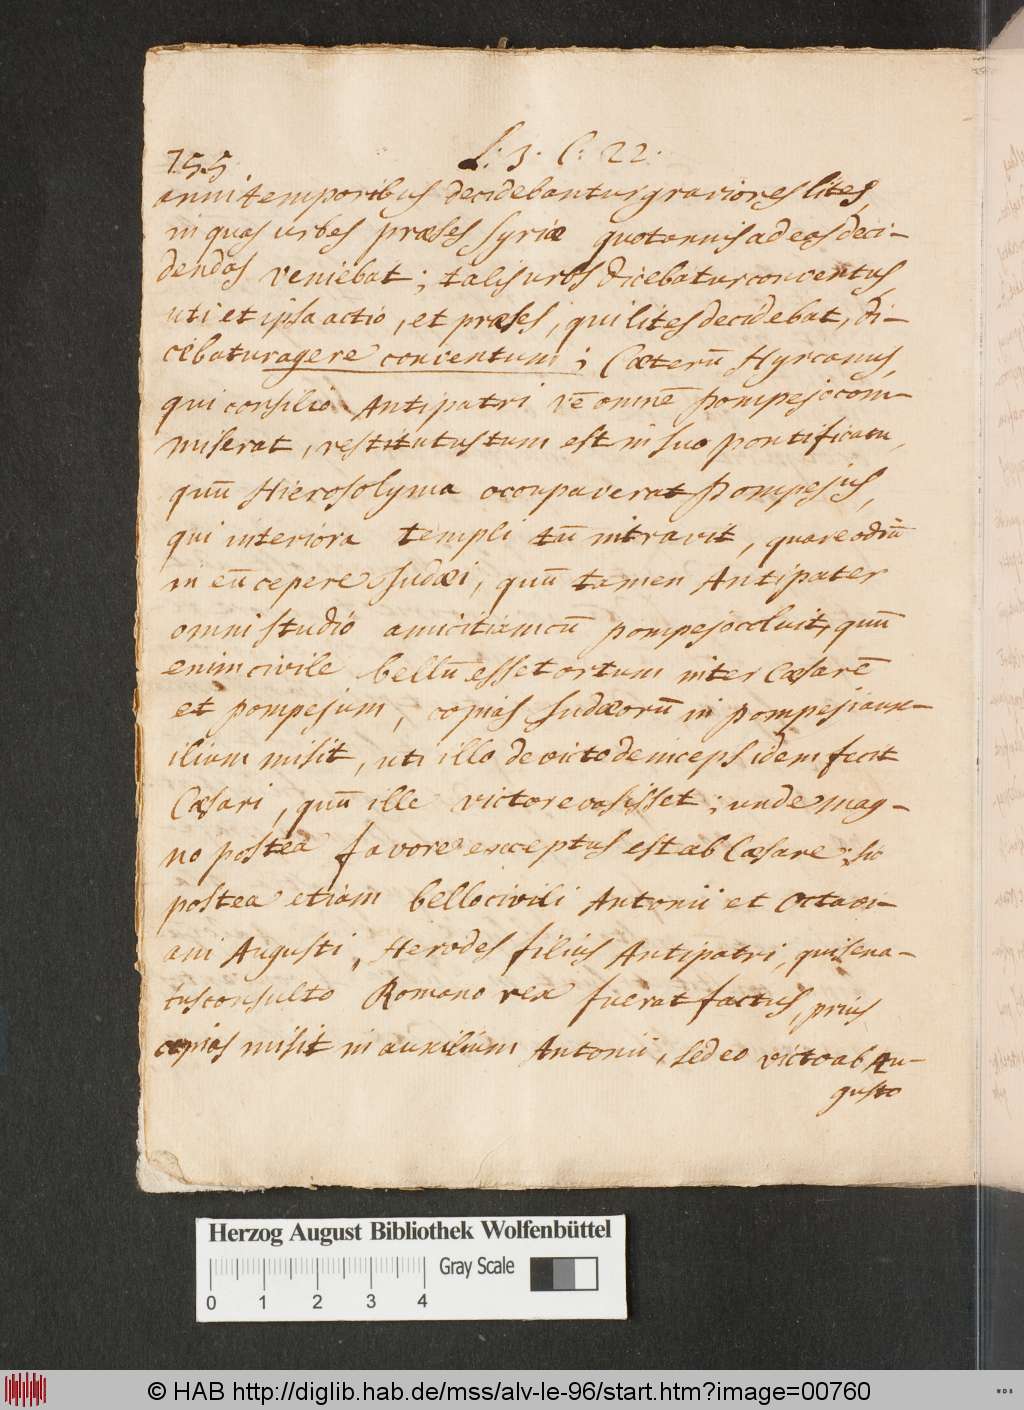 755
L: 3. C: 22.
anni temporibus decidebantur graviores lites,
in quas urbes præses Syriæ quotannis ad eas deci-
dendas veniebat; talis urbs dicebatur conventus,
uti et ipsa actio, et præses, qui lites decidebat, di-
cebatur agere conventum; Cæterū Hyrcanus,
qui consilio Antipatri rē omnē Pompejo com-
miserat, restitutus tum est in suo pontificatu,
quū Hierosolyma occupaverat Pompejus,
qui interiora templi tū intravit, quare odiū
in eū cepere Judæi, quū tamen Antipater
omni studio amicitiam cū Pompejo coluit, quū
enim civile bellū esset ortum inter Cæsarē
et Pompejum, copias Judæorū in Pompeji aux-
ilium misit, uti illo devicto deinceps idem fecit
Cæsari, quū ille victor evasisset; unde mag-
no postea favore exceptus est ab Cæsare; sic
postea etiam bello civili Antonii et Octavi-
ani Augusti, Herodes filius Antipatri, qui sena-
tusconsulto Romano rex fuerat factus, prius
copias misit in auxilium Antonii, sed eo victo ab Au-
gusto
Herzog August Bibliothek Wolfenbüttel
Gray Scale
0 1 2 3 4
© HAB http://diglib.hab.de/mss/alv-le-96/start.htm?image=00760